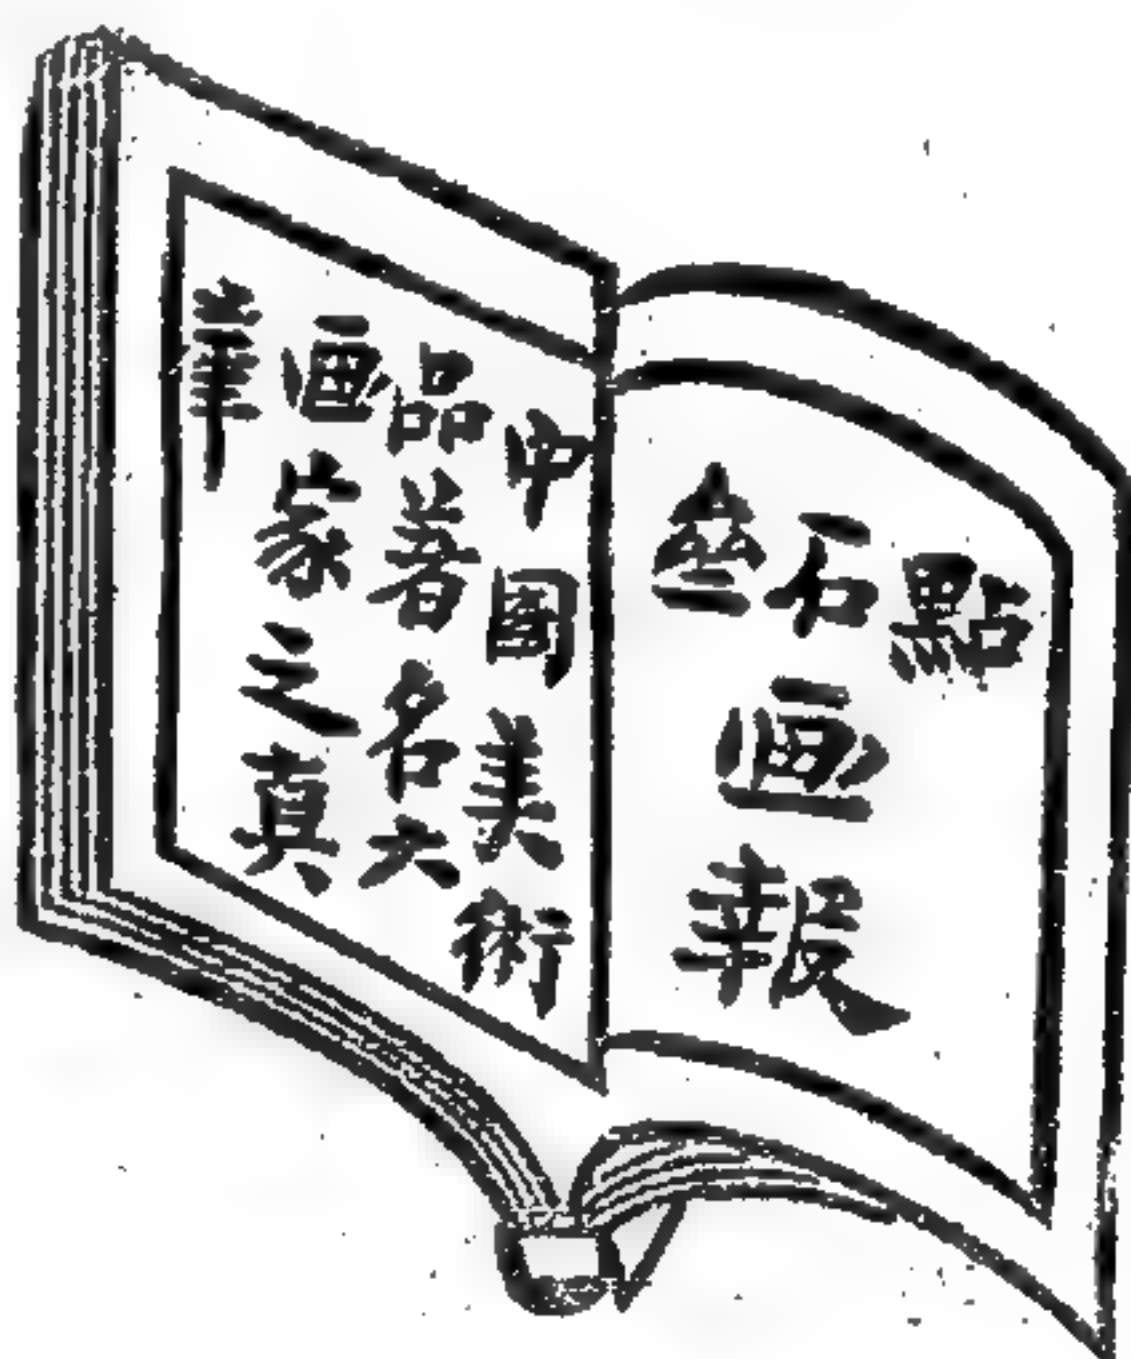 點石亝
画
報
中國美術
品著名大
画家之真
筆